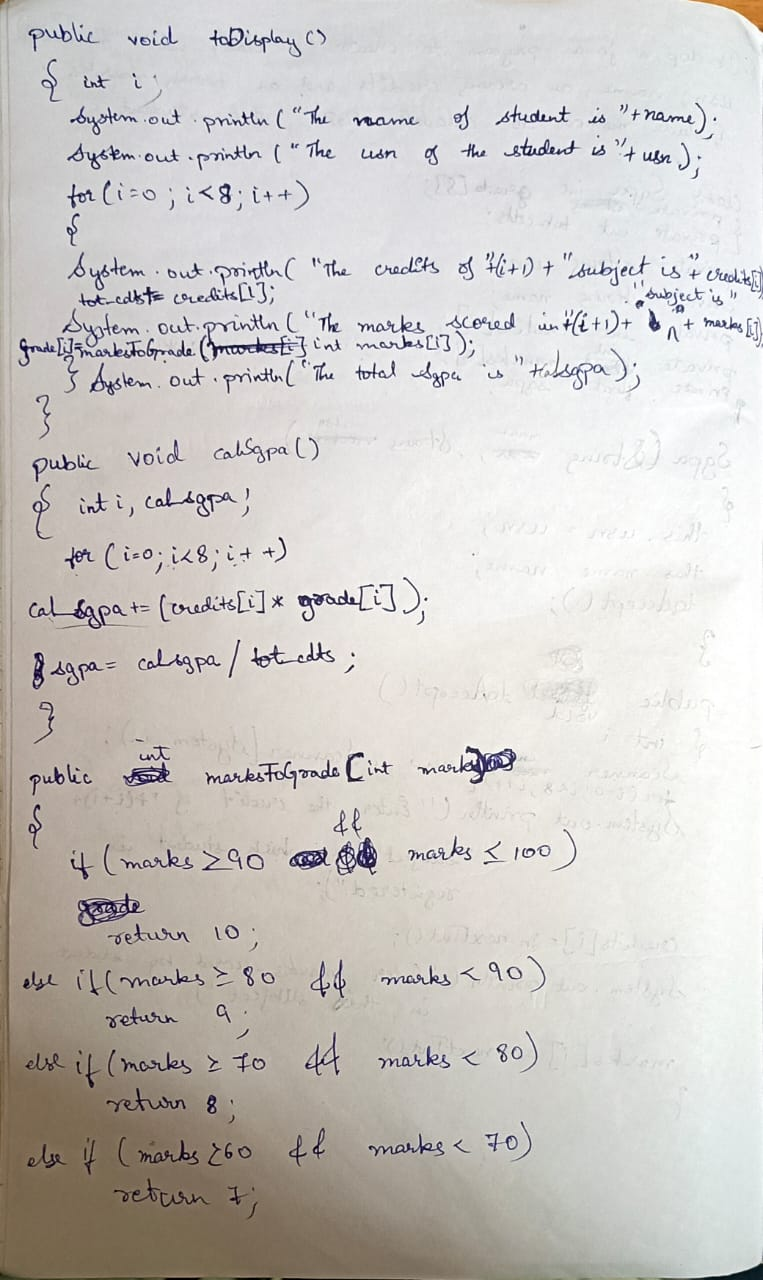 public void toDisplay()
{ int i;
System.out.println("The name of student is "+name);
System.out.println("The usn of the student is "+usn);
for(i=0; i<8; i++)
{
System.out.println("The credits of "+(i+1)+"subject is"+credits[i]
tot-cdts+= credits[i];
System.out.println("The marks scored in"+(i+1)+ "subject is" + marks[i]
grade[i]=marksToGrade(int marks[i]);
} System.out.println("The total sgpa is "+calsgpa);
}
public void calSgpa()
{ int i, cal-sgpa;
for(i=0; i<8; i++)
cal-sgpa+=(credits[i]* grade[i]);
sgpa= calsgpa / tot-cdts;
}
public int marksToGrade(int marks)
{
if(marks ≥90 && marks ≤ 100)
return 10;
else if(marks ≥ 80 && marks < 90)
return 9;
else if(marks ≥ 70 && marks < 80)
return 8;
else if (marks ≥60 && marks < 70)
return 7;